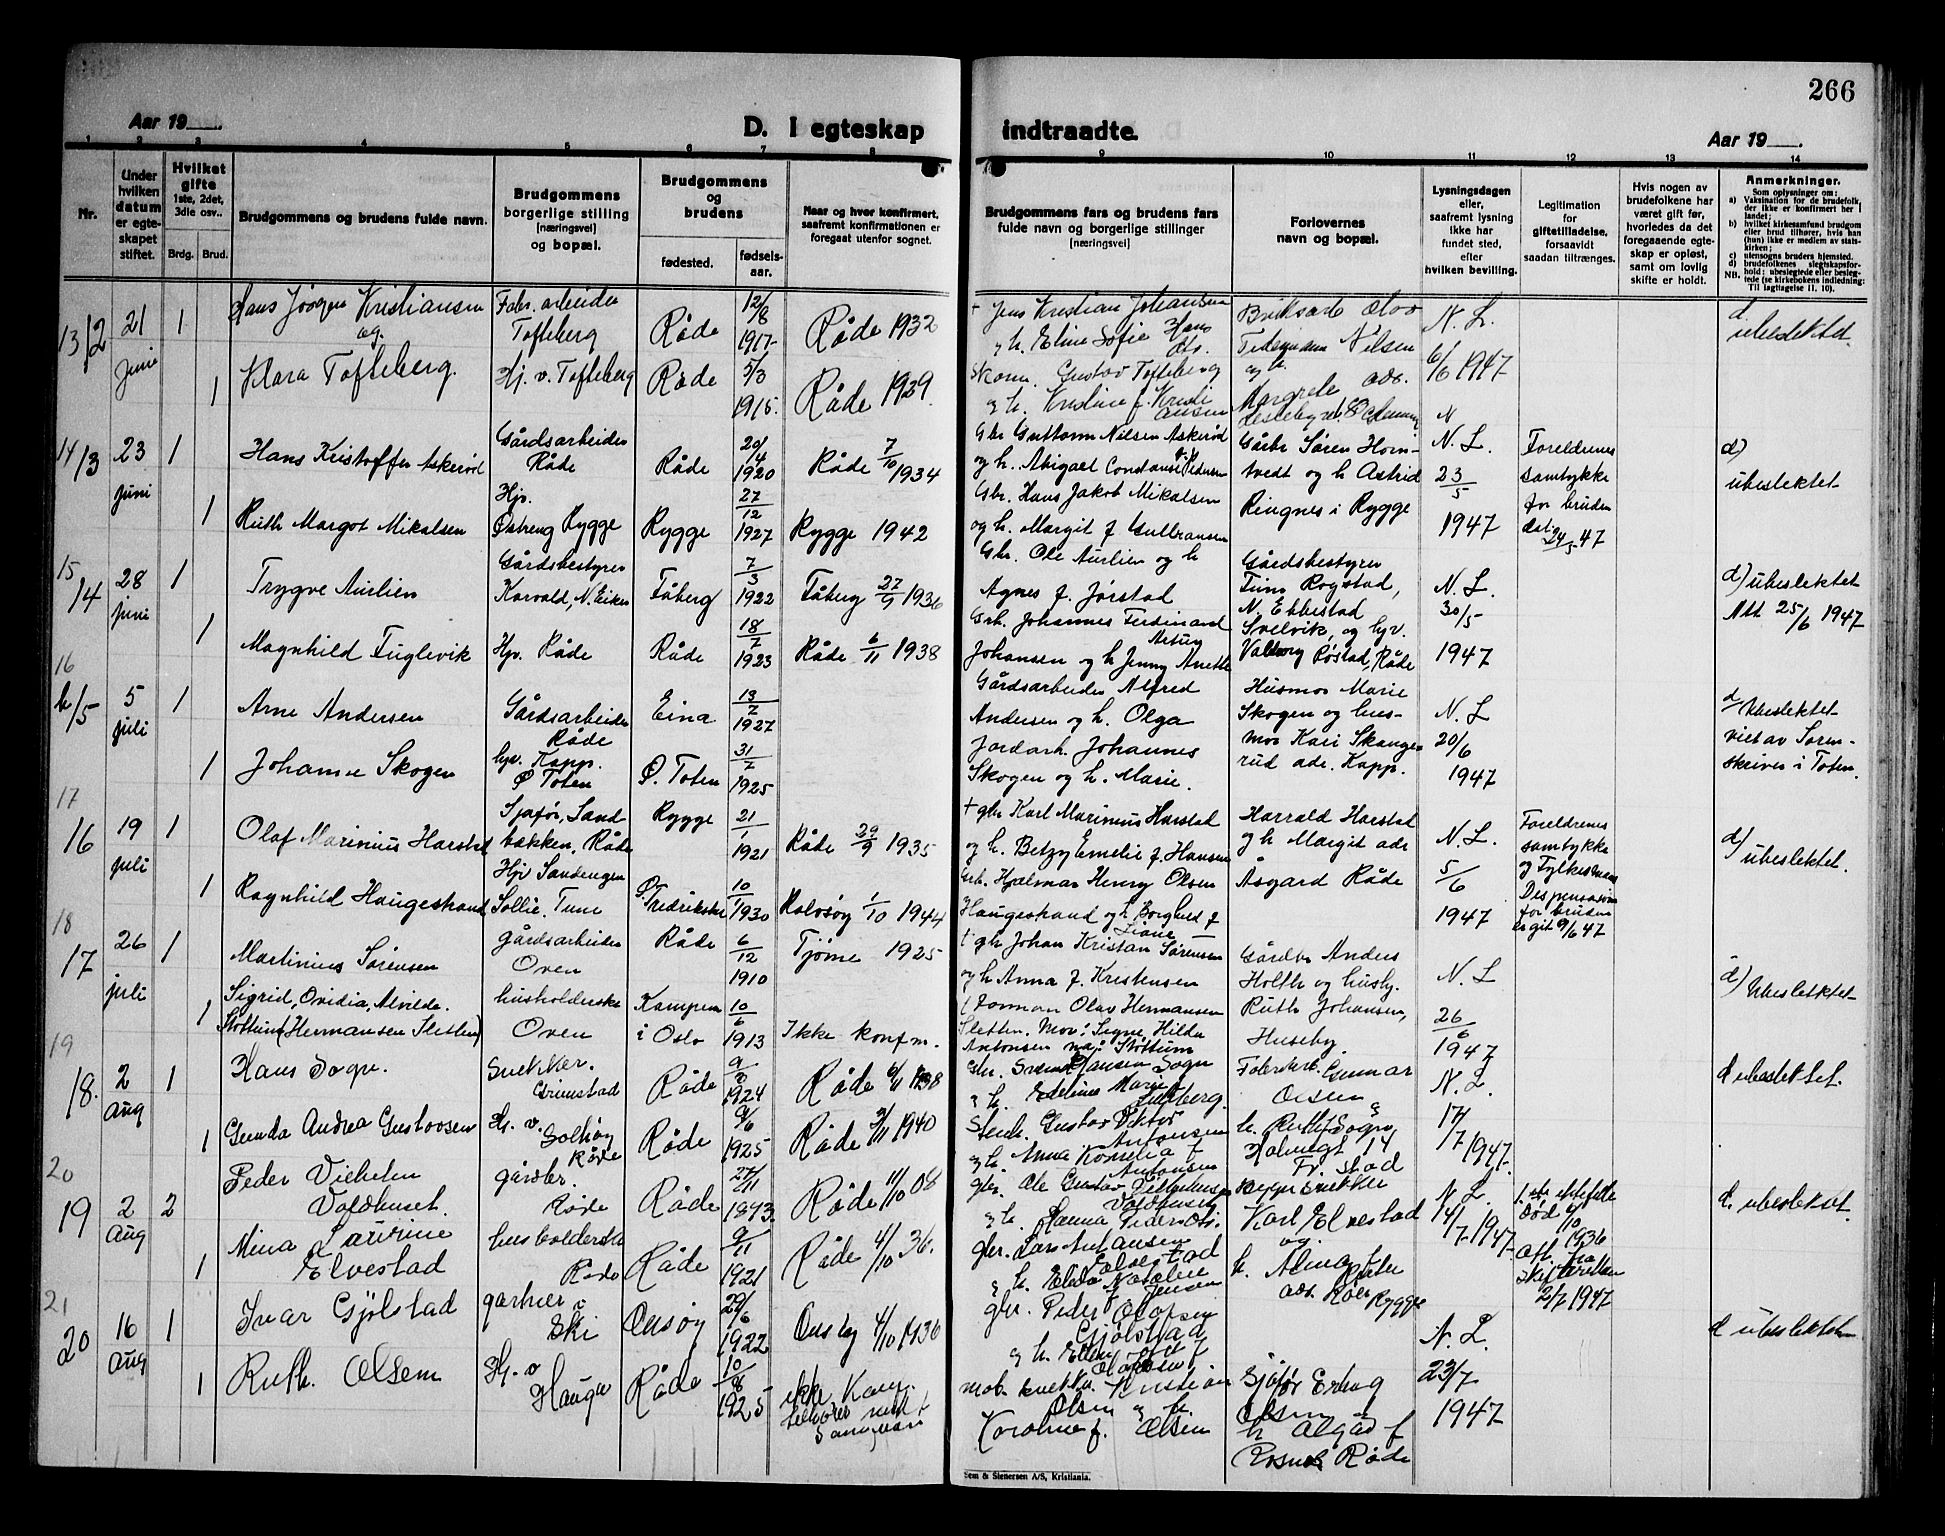 266
Aar 19
D. I egteskap indtraadte.
Aar 19
1 2 3 4 5 6 7 8 9 10 11 12 13 14
Nr.
Under hvilken datum er egteskapet stiftet.
Hvilket gifte 1ste, 2det, 3die osv..
Brdg. Brud.
Brudgommens og brudens fulde navn.
Brudgommens borgerlige stilling [næringsvei] og bopæl.
Brudgommens og brudens
fødested.
fødselsaar.
Naar og hvor konfirmert, saafremt konfirmationen er foregaat utenfor sognet.
Brudgommens fars og brudens fars fulde navn og borgerlige stillinger [næringsvei]
Forlovernes navn og bopæl.
Lysningsdagen eller, saafremt lysning ikke har fundet sted, efter hvilken bevilling.
Legitimation for giftetilladelse, forsaavidt saadan tiltrænges.
Hvis nogen av brudefolkene har været gift før, hvorledes da det foregaaende egteskap er opløst, samt om lovlig skifte er holdt.
Anmerkninger.
Som oplysninger om:
a) Vaksination for de brudefolk, der ikke er konfirmert her i landet;
b) hvilket kirkesamfund brudgom eller brud tilhører, hvis han (hun) ikke er medlem av statskirken;
c) utensogns bruders hjemsted.
d) brudefolkenes slegtskapsforhold: ubeslegtede eller beslegtede (se kirkebokens indledning: Til Iagttagelse 11, 10).
NB.
13/12 21 juni 1 Hans Jörgen Kristiansen og Fabr. arbeider Tofteberg Råde 12/8 1917 Råde 1932
Jens Kristian Johansen g h. Eline Sofie Hans dtr. N. L. 6/6 1947 d. ubeslektet.
1 Klara Tofteberg. Hj. v. Tofteberg Råde 5/3 1915. Råde 1929.
Skom. Gustav Tofteberg g h. Kristine f. Kristiansen
14/13 23 juni 1 Hans Kristoffer Askerød Gårdsarbeider Råde Råde 20/4 1920 Råde 7/10 1934
Gbr Guttorm Nilsen Askerød og h. Abigael Constanse Pedersen Gårbr Søren Horntvedt og h Astrid Ringnes i Rygge N. L. 23/5 1947 Foreldrenes samtykke for bruden 24/5 47 d) ubeslektet
1 Ruth Margot Mikalsen Hjv. Østreng Rygge Rygge 27/12 1927 Rygge 1942
Gbr. Hans Jakob Mikalsen og h. Margit f Gulbransen
15/14 28 juni 1 Trygve Aurlien Gårdsbestyrer Korvald, N. Eiker Fåberg 7/3 1922 Fåberg 27/9 1936
Gbr. Ole Aurlien og h Agnes f. Jørstad Gårdsbestyrer Tune Rogstad, N. Ebbestad Svelvik, og hjv. Valborg Røstad, Råde N. L. 30/5 1947 d) ubeslektet Att 25/6 1947
1 Magnhild Fuglevik Hjv. Råde Råde 18/2 1923 Råde 6/11 1938
Grb. Johannes Ferdinand Artur Johansen og h Jenny Anette
16 5 juli 1 Arne Andersen Gårdsarbeider Råde Eina 13/2 1927
Gårdsarbeider Alfred Andersen og h. Olga Husmor Marie Skogen og husmor Kari Skangerud adr. Kapp. N. L 20/6 1947 d/ Ubeslektet viet av Sorenskriver i Toten.
1 Johanne Skogen hjv. Kapp. Ø Toten Ø. Toten 31/7 1925
Jordarb. Johannes Skogen og h. Marie.
17 16 19 juli 1 Olaf Marinius Harstad Sjåfør, Sandbakken, Råde Rygge 21/1 1921 Råde 29/9 1935
+ gbr Karl Marinius Harstad og h. Betzy Emelie f. Hansen Harrald Harstad og h Margit adr Åsgard Råde N. L. 5/6 1947 Foreldrenes samtykke og Fylkesmans Despensasion for bruden 9/6 47 d/ ubeslektet.
1 Ragnhild Haugestrand Hjv Sandengen Sollie, Tune Fredrikstad 10/1 1930 Rolvsøy 1/10 1944
Grb. Hjalmar Henry Olsen Haugestrand og h Borghild f Liane
18 17 26 juli 1 Martinius Sørensen gårdsarbeider Oven Råde 6/12 1910 Tjøme 1925
+ gbr Johan Kristan Sørensen og h Anna f. Kristensen Gårdbr Anders Holth og husby. Ruth Johansen, Huseby. N. L 26/6 1947 d) Ubeslektet
1 Sigrid, Ovidia, Alvilde. Støttum (Hermansen Sletten) husholderske Oven Kampen i Oslo 10/6 1913 Ikke konf m.
Olav Hermansen Sletten. Mor: Signe, Hilda Antonsen nå: Støttum
19 18. 2 Aug 1 Hans Sogn. Snekker. Grimstad Råde 9/2 1924 Råde 6/11 1938
Gbr. Svend Hansen Sogn g h. Edelinus Marie Lundberg. Fabrikarb. Gunnar Olsen g h. Ruth f Sogn, Holmegt 14 Fr. stad N. L. 17/7 1947. d ubeslektet.
1 Gunda Andrea Gustavsen Hj. v. Solhöy Råde Råde 9/6 1925 Råde 3/11 1940
Stenh. Gustav Viktor Antonsen g h. Anna Kornelia f Antonsen
20 19 2 Aug 2 Peder Vilhelm Voldhuset. gårdbr. Råde Råde 27/11 1873. Råde 11/10 08
gbr. Ole Gustav Vilhelmsen Voldhuset g h. Hanna Pedersdtr. Byggmsnekker Karl Elvestad og h. Alma f Sæter adr. Roer Rygge N. L. 14/7 1947 død 4/10 1936 Att. fra Skifteretten 2/7 1947 d. ubeslektet.
1 Mina Laurine Elvestad husholderske Råde Råde 9/11 1921 Råde 4/10 36.
gbr. Lars Anf Hansen Elvestad g h. Elida Natalie f. Jensen
21 20 16 Aug 1 Ivar Gjölstad gartner i Ski Onsøy 29/6 1922 Onsøy 4/10 1936
gbr. Peder Olafsen Gjölstad g h. Ellen f Olafsen Sjåfør Erling Olsen g h Algåd f Rosnes Råde N. L. 23/7 1947 d ubeslektet
1 Ruth. Olsen Hj. v Haugen Råde 10/8 1925 ikke Konf. tilhører
møb. snekker. Kristian Olsen g h. Karoline f. Olsen
Sem & Stenersen A/S, Kristiania.